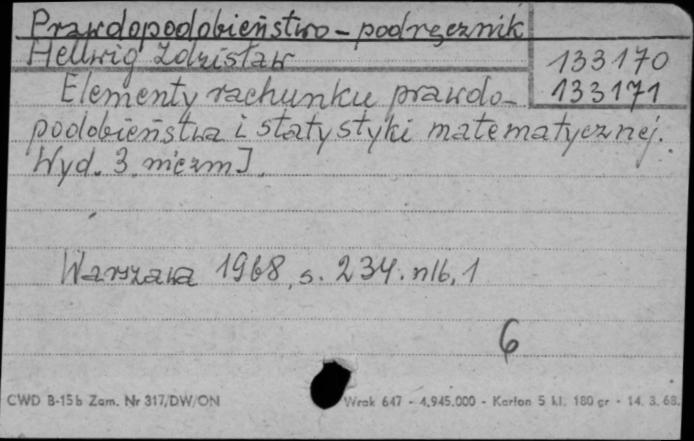 Prawdopodobieństwo - podręcznik
Hellwig Zdzisław
133170
133171
Elementy rachunku prawdo-
podobieństwa i statystyki matematycznej.
Wyd. 3. niezm].
Warszawa 1968, s. 234. nlb. 1
6
CWD B-15b Zam. Nr 317/DW/ON
Wrak 647 - 4.945.000 - Karton 5 kl. 180 gr - 14. 3. 68.